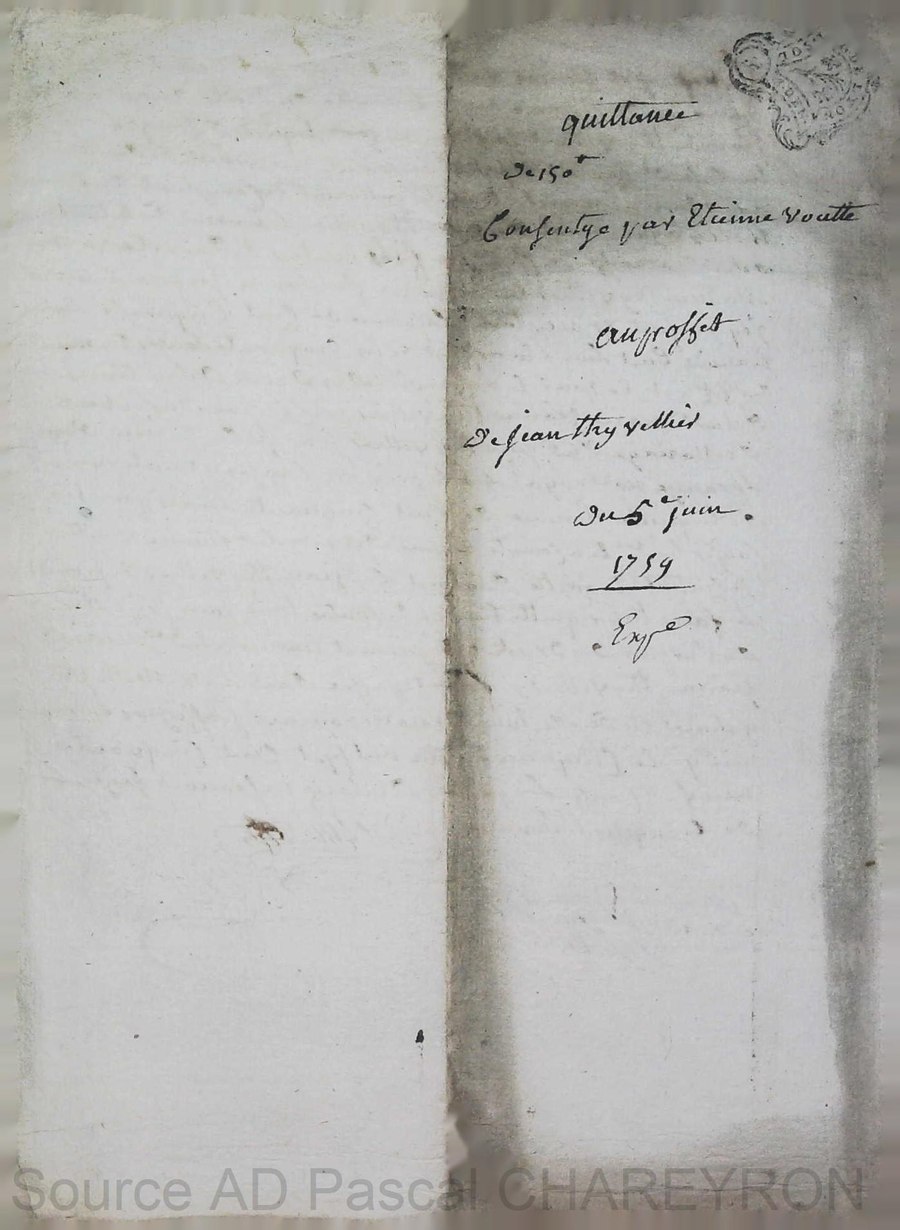 quittance
de 150#
Consentye par Etienne Voutte
au proffet
de jean thyvellier
du 5e juin
1759
Expe
Source AD Pascal CHAREYRON